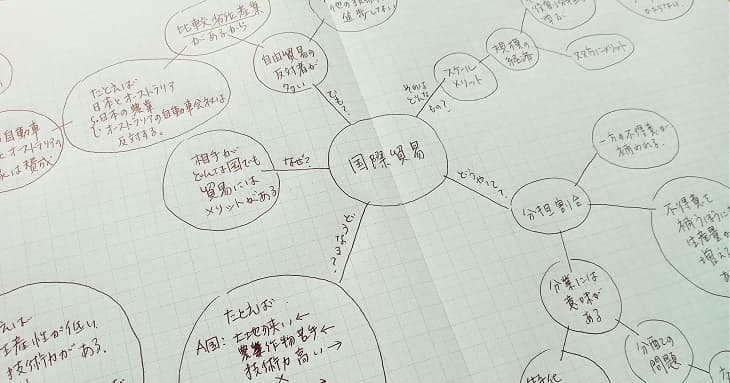 比較劣位産業
があるから
自由貿易の
反対者が
多い
でも?
たとえば
日本とオーストラリア
日本の農業
オーストラリアの自動車会社は
反対する。
自動車
オーストラリアの
は賛成
相手が
どんな国でも
貿易には
メリットがある
なぜ?
国際貿易
それは
どんな
もの?
スケール
メリット
規模の
経済
双方にメリット
どうやって?
分担割合
一方の不得意が
補われる。
不得意を
補うほうに
生産量が
増える
分業には
意味が
ある
分配の
問題
特化
どうなる?
たとえば
A国: 土地が狭い←
農業作物苦手←
技術力高い→
生産性が低い
技術力がある。